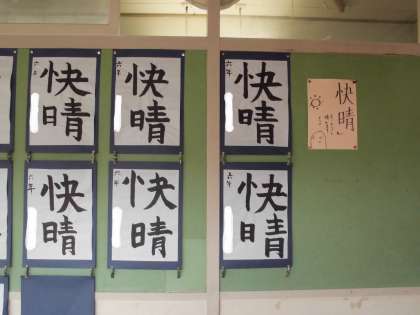 六年
快晴
六年
快晴
六年
快晴
快晴
六年
快晴
六年
快晴
六年
快晴